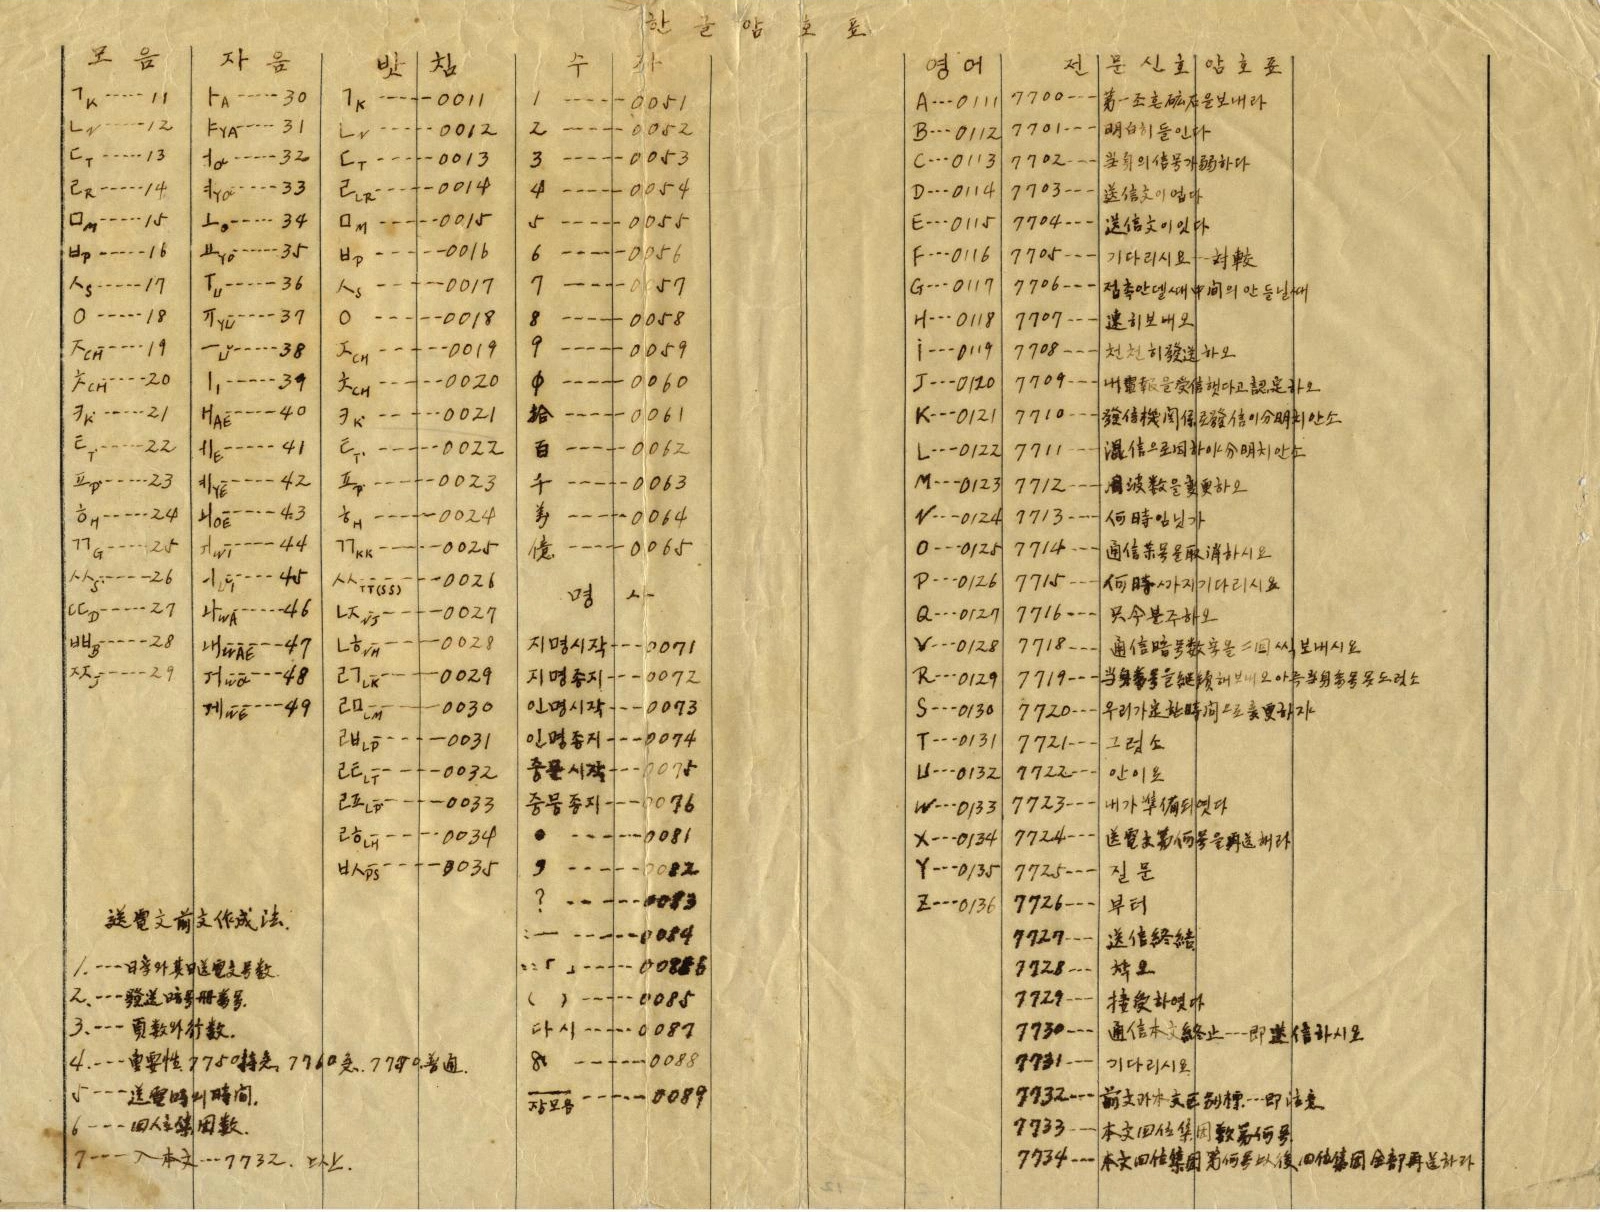 한글암호표
모음
ㄱK-----11
ㄴN-----12
ㄷT-----13
ㄹR-----14
ㅁM-----15
ㅂP-----16
ㅅS-----17
ㅇ-----18
ㅈCH-----19
ㅊCH-----20
ㅋK'-----21
ㅌT'-----22
ㅍP'-----23
ㅎH-----24
ㄲG-----25
ㅆS-----26
ㄸD-----27
ㅃB-----28
ㅉJ-----29
자음
ㅏA-----30
ㅑYA-----31
ㅓ-----32
ㅕ-----33
ㅗO-----34
ㅛYO-----35
ㅜU-----36
ㅠYU-----37
ㅡŬ-----38
ㅣI-----39
ㅐAE-----40
ㅔE-----41
ㅖYE-----42
ㅚOE-----43
ㅟWI-----44
ㅢ-----45
ㅘWA-----46
ㅙWAE-----47
ㅝ-----48
ㅞWE-----49
받침
ㄱK-----0011
ㄴN-----0012
ㄷT-----0013
ㄹLR-----0014
ㅁM-----0015
ㅂP-----0016
ㅅS-----0017
ㅇ-----0018
ㅈCH-----0019
ㅊCH-----0020
ㅋK'-----0021
ㅌT'-----0022
ㅍP'-----0023
ㅎH-----0024
ㄲKK-----0025
ㅆTT(SS)-----0026
ㄵNJ-----0027
ㄶNH-----0028
ㄺLK-----0029
ㄻLM-----0030
ㄼLP-----0031
ㄾLT-----0032
ㄿLP-----0033
ㅀLH-----0034
ㅄPS-----0035
수자
1-----0051
2-----0052
3-----0053
4-----0054
5-----0055
6-----0056
7-----0057
8-----0058
9-----0059
φ-----0060
拾-----0061
百-----0062
千-----0063
萬-----0064
億-----0065
명사
지명시작---0071
지명종지---0072
인명시작---0073
인명종지---0074
중문시작---0075
중뭉종지---0076
●-----0081
,-----0082
?-----0083
:—-----0084
-----0086
( )-----0085
다시-----0087
-----0088
장모음-----0089
영어
A---0111
B---0112
C---0113
D---0114
E---0115
F---0116
G---0117
H---0118
i---0119
J---0120
K---0121
L---0122
M---0123
N---0124
O---0125
P---0126
Q---0127
V---0128
R---0129
S---0130
T---0131
U---0132
W---0133
X---0134
Y---0135
Z---0136
전문신호암호표
7700---第一조흔 을보내라
7701---明白히들인다
7702---当身의信号가弱하다
7703---送信文이업다
7704---送信文이잇다
7705---기다리시요---対較
7706---접촉안델ᄯᅢ中間의안들닐ᄯᅢ
7707---速히보내오
7708---천천히發送하오
7709---내電報을受信햇다고認定하오
7710---發信機関係로發信이分明치안소
7711---混信으로因하야分明치안소
7712---周波数을変更하오
7713---何時임닛가
7714---通信 号을取消하시요
7715---何時ᄭᅡ지기다리시요
7716---只今분주하오
7718---通信暗号数字을二回씩보내시요
7719---当身番号을継続해보내오아즉当身番号못드럿소
7720---우리가定한時間으로変更하자
7721---그럿소
7722---안이요
7723---내가準備되엿다
7724---送電文第何号을再送해라
7725---질문
7726---부터
7727---送信終結
7728---착오
7729---接受하엿다
7730---通信本文終止---即 信하시요
7731---기다리시요
7732---前文과本文区别標---即注意
7733---本文四位集団数第何号
7734---本文四位集団第何号以後四位集団全部再送하라
送電文前文作成法.
1.---日字와其日送電文号数
2.---發送暗号册番号.
3.---頁数와行数.
4.---重要性7750特急,7760急.7770普通.
5---送電時의時間.
6---四位集団数.
7---入本文---7732.以上.